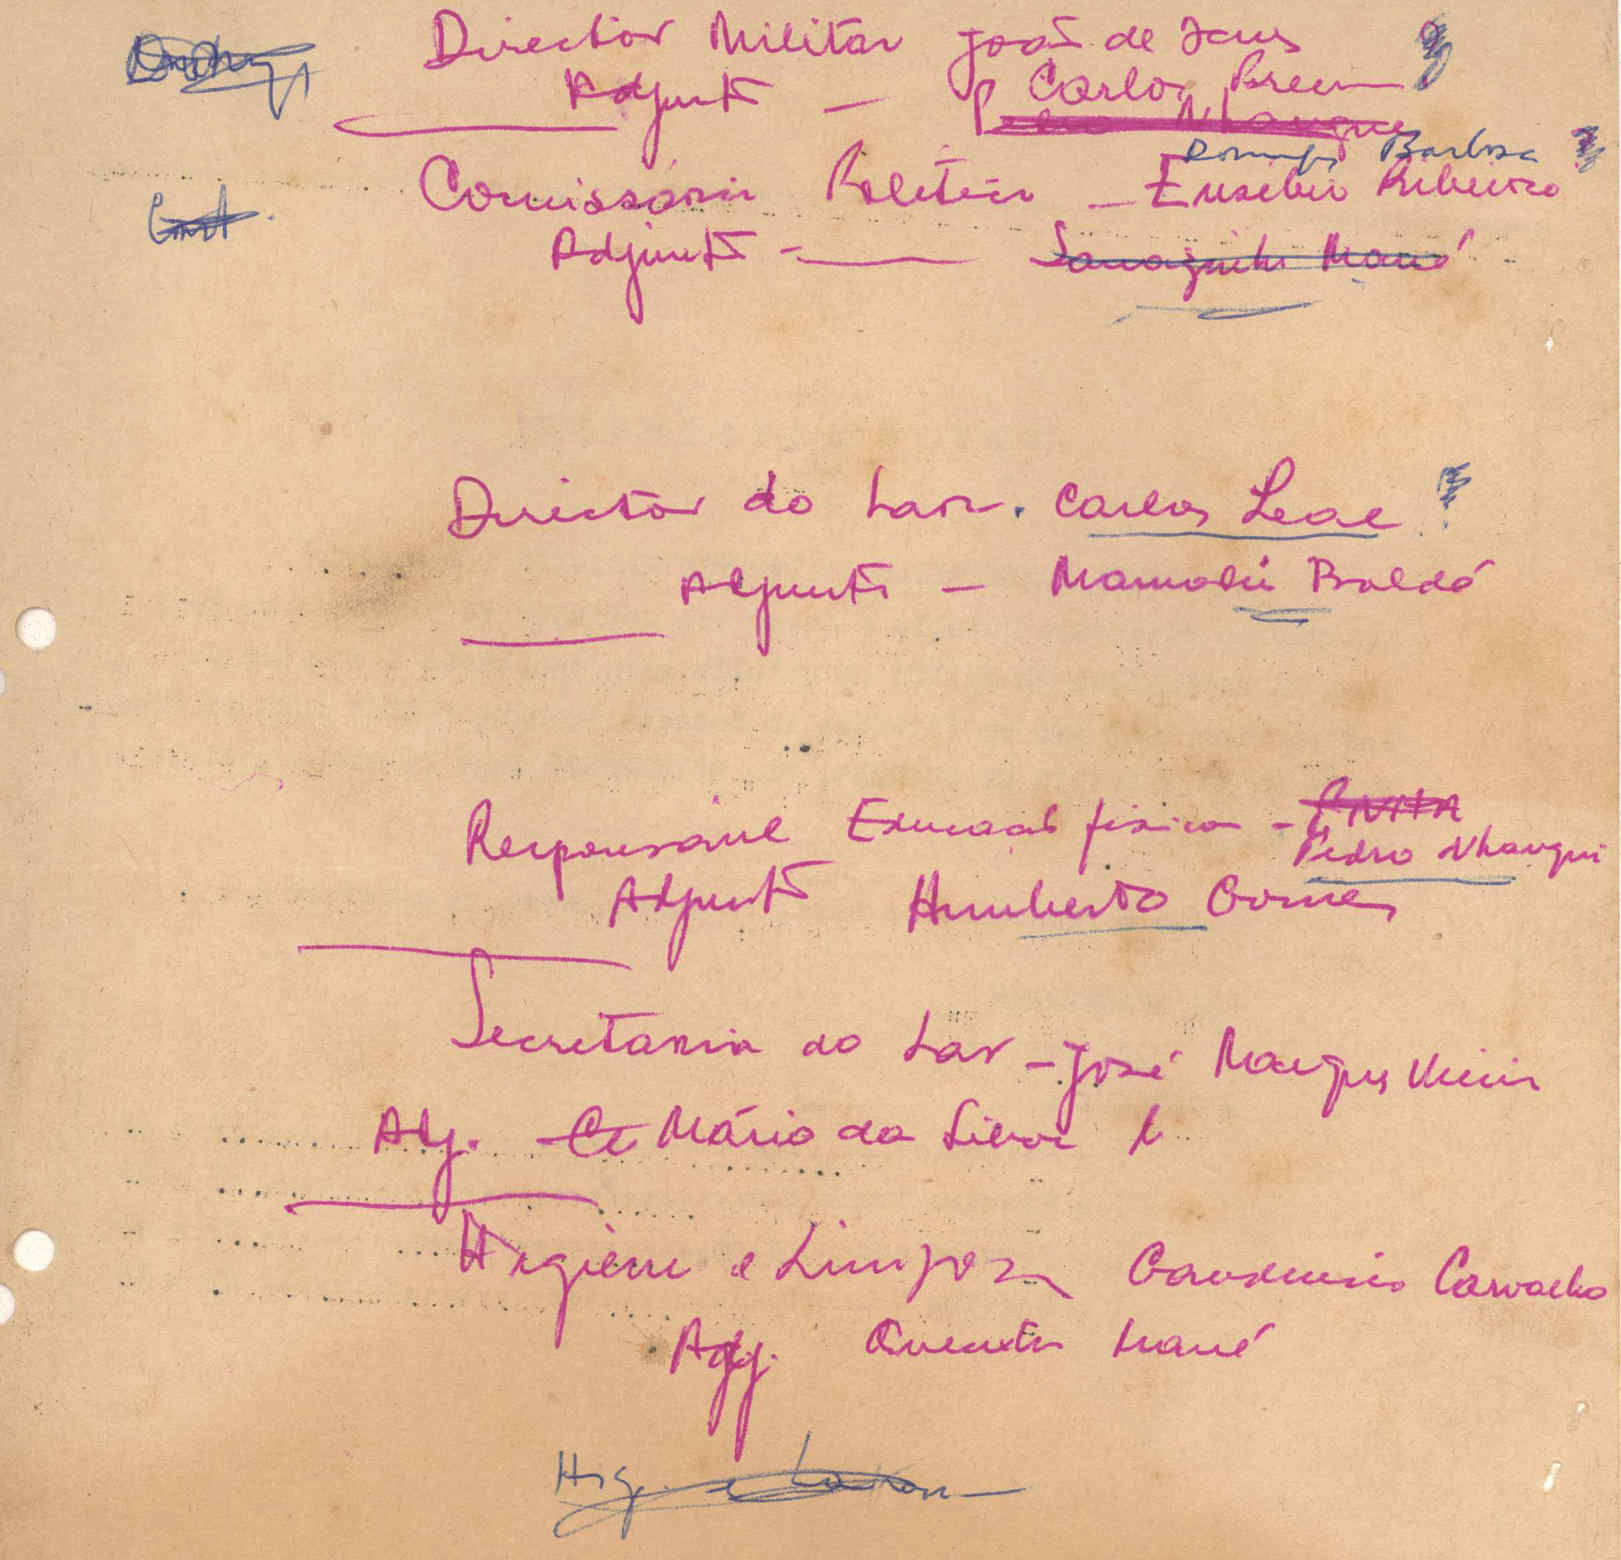 Director Militar João de Jesus
Adjunto — Carlos
Nhanque
Domingos Barbosa
Comissário Politico — Eusébio Ribeiro
Adjunto — Mané
Director do Lar. Carlos Leal
Adjunto — Mamadú Baldé
Responsável Educação física -
Pedro Nhanque
Adjunto Humberto Gomes
Secretaria do Lar - José Marques Vieira
Adj. Mário da Silva
Higiene e Limpeza Gaudencio Carvalho
Adj. Quecuta Mané
Hig. e